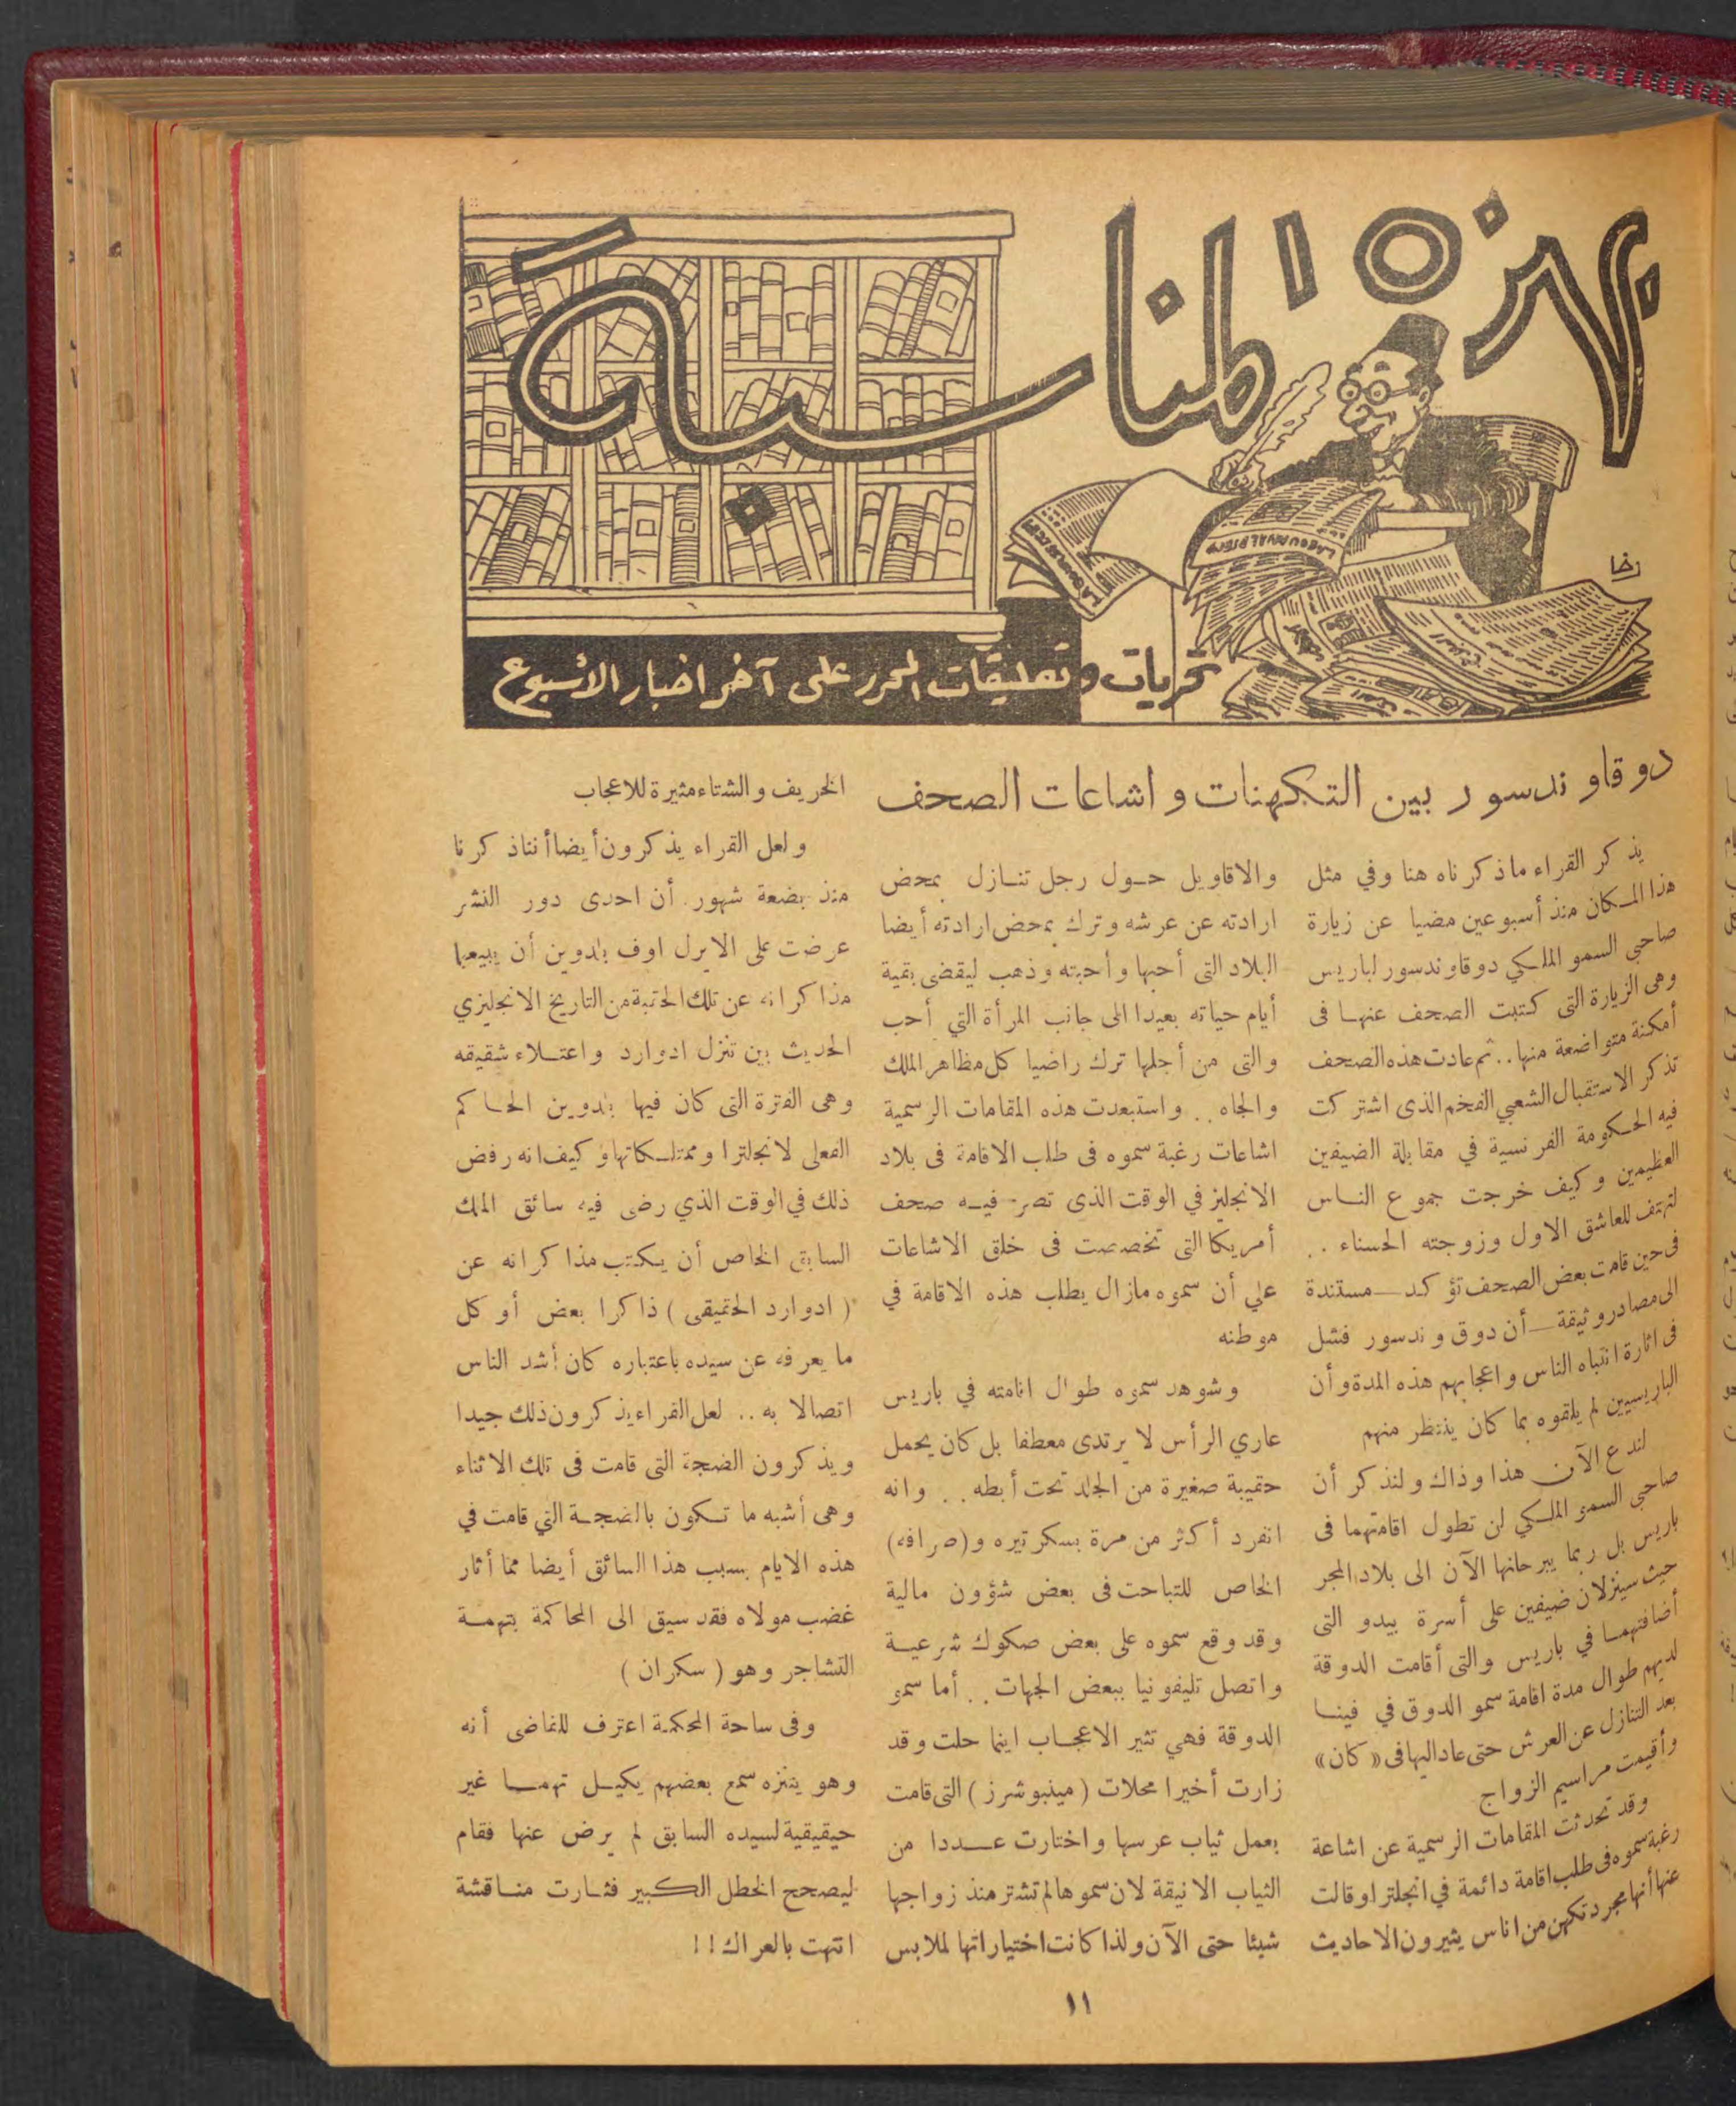 بمناسبة
رخا
تحريات وتعليقات المحرر على آخر اخبار الأسبوع
دوقا وندسور بين التكهنات واشاعات الصحف
يذكر القراء ما ذكرناه هنا وفي مثل
هذا المكان منذ أسبوعين مضيا عن زيارة
صاحبى السمو الملكي دوقا وندسور لباريس
وهى الزيارة التى كتبت الصحف عنها فى
أمكنة متواضعة منها .. ثم عادت هذه الصحف
تذكر الاستقبال الشعبي الفخم الذى اشتركت
فيه الحكومة الفرنسية في مقابلة الضيفين
العظيمين وكيف خرجت جموع الناس
لتهتف للعاشق الاول وزوجته الحسناء ..
فى حين قامت بعض الصحف تؤكد — مستندة
الى مصادر وثيقة — أن دوق وندسور فشل
فى اثارة انتباه الناس واعجابهم هذه المدة وأن
الباريسيين لم يلقوه بما كان ينتظر منهم
لندع الآن هذا وذاك ولنذكر أن
صاحبى السمو الملكي لن تطول اقامتهما فى
باريس بل ربما يبرحانها الآن الى بلاد المجر
حيث سينزلان ضيفين على أسرة بيدو التى
أضافتهما في باريس والتى أقامت الدوقة
لديهم طوال مدة اقامة سمو الدوق في فينا
بعد التنازل عن العرش حتى عاد اليها فى « كان »
وأقيمت مراسيم الزواج
وقد تحدثت المقامات الرسمية عن اشاعة
رغبة سموه فى طلب اقامة دائمة في انجلترا وقالت
عنها أنها مجرد تكهن من اناس يثيرون الاحاديث
والاقاويل حول رجل تنازل بمحض
ارادته عن عرشه وترك بمحض ارادته أيضا
البلاد التى أحبها وأحبته وذهب ليقضى بقية
أيام حياته بعيدا الى جانب المرأة التي أحب
والتى من أجلها ترك راضيا كل مظاهر الملك
والجاه .. واستبعدت هذه المقامات الرسمية
اشاعات رغبة سموه فى طلب الاقامة فى بلاد
الانجليز في الوقت الذى تصر فيه صحف
أمريكا التى تخصصت فى خلق الاشاعات
علي أن سموه مازال يطلب هذه الاقامة في
موطنه
وشوهد سموه طوال اقامته في باريس
عاري الرأس لا يرتدى معطفا بل كان يحمل
حقيبة صغيرة من الجلد تحت أبطه .. وانه
انفرد أكثر من مرة بسكرتيره و (صرافه)
الخاص للتباحث فى بعض شؤون مالية
وقد وقع سموه على بعض صكوك شرعية
واتصل تليفونيا ببعض الجهات .. أما سمو
الدوقة فهي تثير الاعجاب اينما حلت وقد
زارت أخيرا محلات ( مينبوشرز ) التى قامت
بعمل ثياب عرسها واختارت عددا من
الثياب الانيقة لان سموها لم تشتر منذ زواجها
شيئا حتى الآن ولذا كانت اختياراتها لملابس
الخريف والشتاء مثيرة للاعجاب
ولعل القراء يذكرون أيضا أننا ذكرنا
منذ بضعة شهور أن احدى دور النشر
عرضت على الايرل اوف بلدوين أن يبيعها
مذاكراته عن تلك الحقبة من التاريخ الانجليزي
الحديث بين تنزل ادوارد واعتلاء شقيقه
وهى الفترة التى كان فيها بلدوين الحاكم
الفعلى لانجلترا وممتلكاتها وكيف انه رفض
ذلك في الوقت الذي رضى فيه سائق الملك
السابق الخاص أن يكتب مذاكراته عن
( ادوارد الحقيقى ) ذاكرا بعض أو كل
ما يعرفه عن سيده باعتباره كان أشد الناس
اتصالا به .. لعل القراء يذكرون ذلك جيدا
ويذكرون الضجة التى قامت فى تلك الاثناء
وهى أشبه ما تكون بالضجة التي قامت في
هذه الايام بسبب هذا السائق أيضا مما أثار
غضب مولاه فقد سيق الى المحاكمة بتهمة
التشاجر وهو ( سكران )
وفى ساحة المحكمة اعترف للقاضى أنه
وهو يتنزه سمع بعضهم يكيل تهما غير
حيقيقية لسيده السابق لم يرض عنها فقام
ليصحح الخطل الكبير فثارت مناقشة
انتهت بالعراك ! !
١١